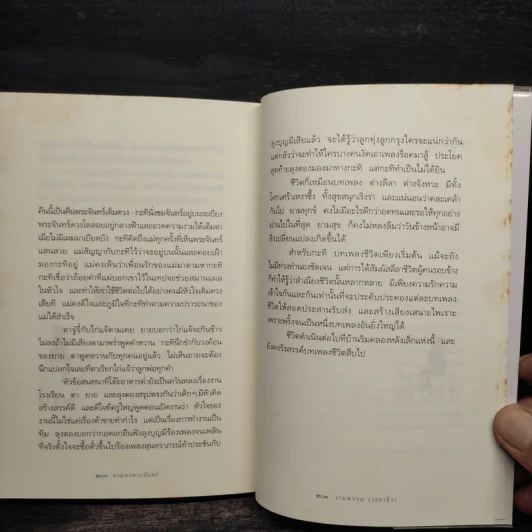 คืนนี้เป็นคืนพระจันทร์เต็มดวง กะทินั่งชมจันทร์อยู่บนระเบียง
พระจันทร์ดวงโตลอยอยู่กลางฟ้าและอวดความงามได้เต็มตา
เมื่อไม่มีเมฆมาเบียดบัง กะทิคิดถึงแม่ทุกครั้งที่เห็นพระจันทร์
แสนสวย แม่สัญญากับกะทิไว้ว่าจะอยู่บนนั้นและคอยเฝ้า
มองกะทิอยู่ แม่คงเห็นว่าเพื่อนรักของแม่มาตามหากะทิ
กะทิเชื่อว่าถ้อยคำที่แม่บอกเขาไว้ในเทปจะช่วยสมานแผล
ในหัวใจ และทำให้เขาใช้ชีวิตต่อไปได้อย่างคนมีหัวใจเต็มดวง
เสียที แม่คงดีใจและภูมิใจที่กะทิทำตามความปรารถนาของ
แม่ได้สำเร็จ
ตาจู้จี้กับไก่แจ้ตามเคย ยายบอกว่าไก่แจ้จะกินข้าว
ไม่ลงถ้าไม่มีเสียงตามาพร่ำพูดค่ำหวาน กะทินึกขำกับวงค้อน
ของยาย ตาพูดหวานกับทุกคนอยู่แล้ว ไม่เห็นยายจะต้อง
นึกแปลกใจเลยที่ตาเรียกไก่แจ้ว่าลูกพ่อทุกคำ
หัวข้อสนทนาที่โต๊ะอาหารค่ำยังเป็นควันหลงเรื่องงาน
โรงเรียน ตา ยาย และลุงตองสรุปตรงกันว่าเด็กๆ มีหัวคิด
สร้างสรรค์ดี และดีใจที่ครูใหญ่พูดตอนเปิดงานว่า หัวใจของ
งานนี้ไม่ใช่แค่เรื่องค้าขายทำกำไร แต่เป็นเรื่องการทำงานเป็น
ทีม ลุงตองบอกว่ากอดอกยืนฟังลุงบุญมีร้องเพลงจนเพลิน
ที่จริงตั้งใจจะซื้อตั๋วขึ้นไปร้องเพลงสุนทราภรณ์ท้าประชันกับ
๒๐๐ ตามหาพระจันทร์
ลุงบุญมีเสียแล้ว จะได้รู้ว่าลูกทุ่งลูกกรุงใครจะแน่กว่ากัน
แต่กลัวว่าจะทำให้ใครบางคนงัดเอาเพลงร็อคมาสู้ ประโยค
สุดท้ายลุงตองมองมาทางกะทิ แต่กะทิทำเป็นไม่ได้ยิน
ชีวิตก็เหมือนบทเพลง ต่างลีลา ต่างจังหวะ มีทั้ง
โศกเศร้าเหงาซึ้ง ทั้งสุขสนุกเริงร่า และแน่นอนว่าคละเคล้า
กันไป ยามทุกข์ คงไม่มีอะไรดีกว่าอดทนและรอให้ทุกอย่าง
ผ่านไปในที่สุด ยามสุข ก็คงไม่หลงลืมว่าวันข้างหน้าอาจมี
สิ่งเปลี่ยนแปลงเกิดขึ้นได้
สำหรับกะทิ บทเพลงชีวิตเพียงเริ่มต้น แม้จะยัง
ไม่มีท่วงทำนองชัดเจน แต่การได้สัมผัสลีลาชีวิตผู้คนรอบข้าง
ก็ทำให้รู้ว่าลำเนียงชีวิตนั้นหลากหลาย มีเพียงความรักความ
เข้าใจกันและกันเท่านั้นที่จะประคับประคองแต่ละบทเพลง
ชีวิตให้สอดประสานรับส่ง และสร้างเสียงเสนาะไพเราะ
เพราะพริ้งจนเป็นหนึ่งบทเพลงอันยิ่งใหญ่ได้
ชีวิตดำเนินต่อไปที่บ้านริมคลองหลังเล็กแห่งนี้ และ
ยังคงรังสรรค์บทเพลงชีวิตสืบไป
๒๐๑ งามพรรณ เวชชาชีวะ